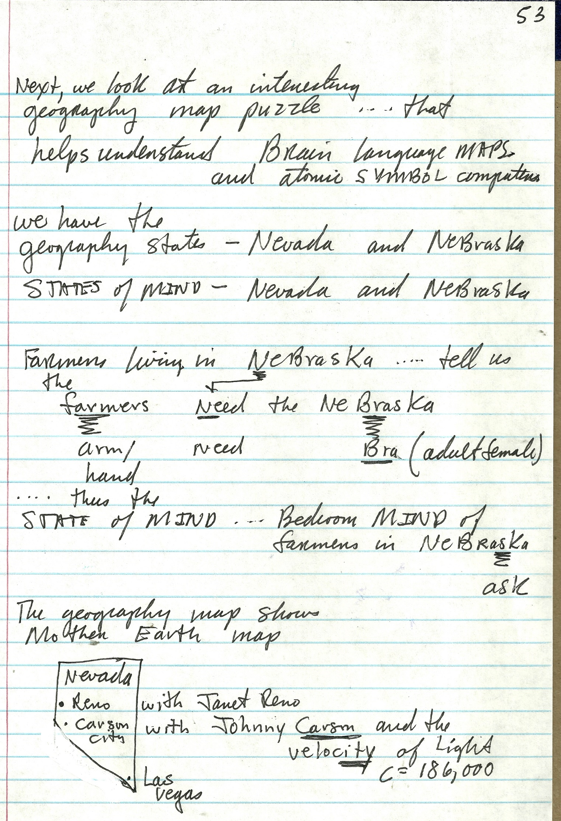 53
Next, we look at an interesting
geography map puzzle .... that
helps understand Brain Language MAPS
and atomic SYMBOL computers
we have the
geography states - Nevada and NeBraska
STATES of MIND - Nevada and NeBraska
Farmers living in NeBraska ..... tell us
the
farmers Need the Ne Braska
arm/ need Bra (adult female)
hand
.... thus the
STATE of MIND ... Bedroom MIND of
farmers in NeBraska
ask
The geography map shows
Mother Earth map
Nevada
• Reno with Janet Reno
• Carson with Johnny Carson and the
city velocity of Light
C = 186,000
• Las
Vegas